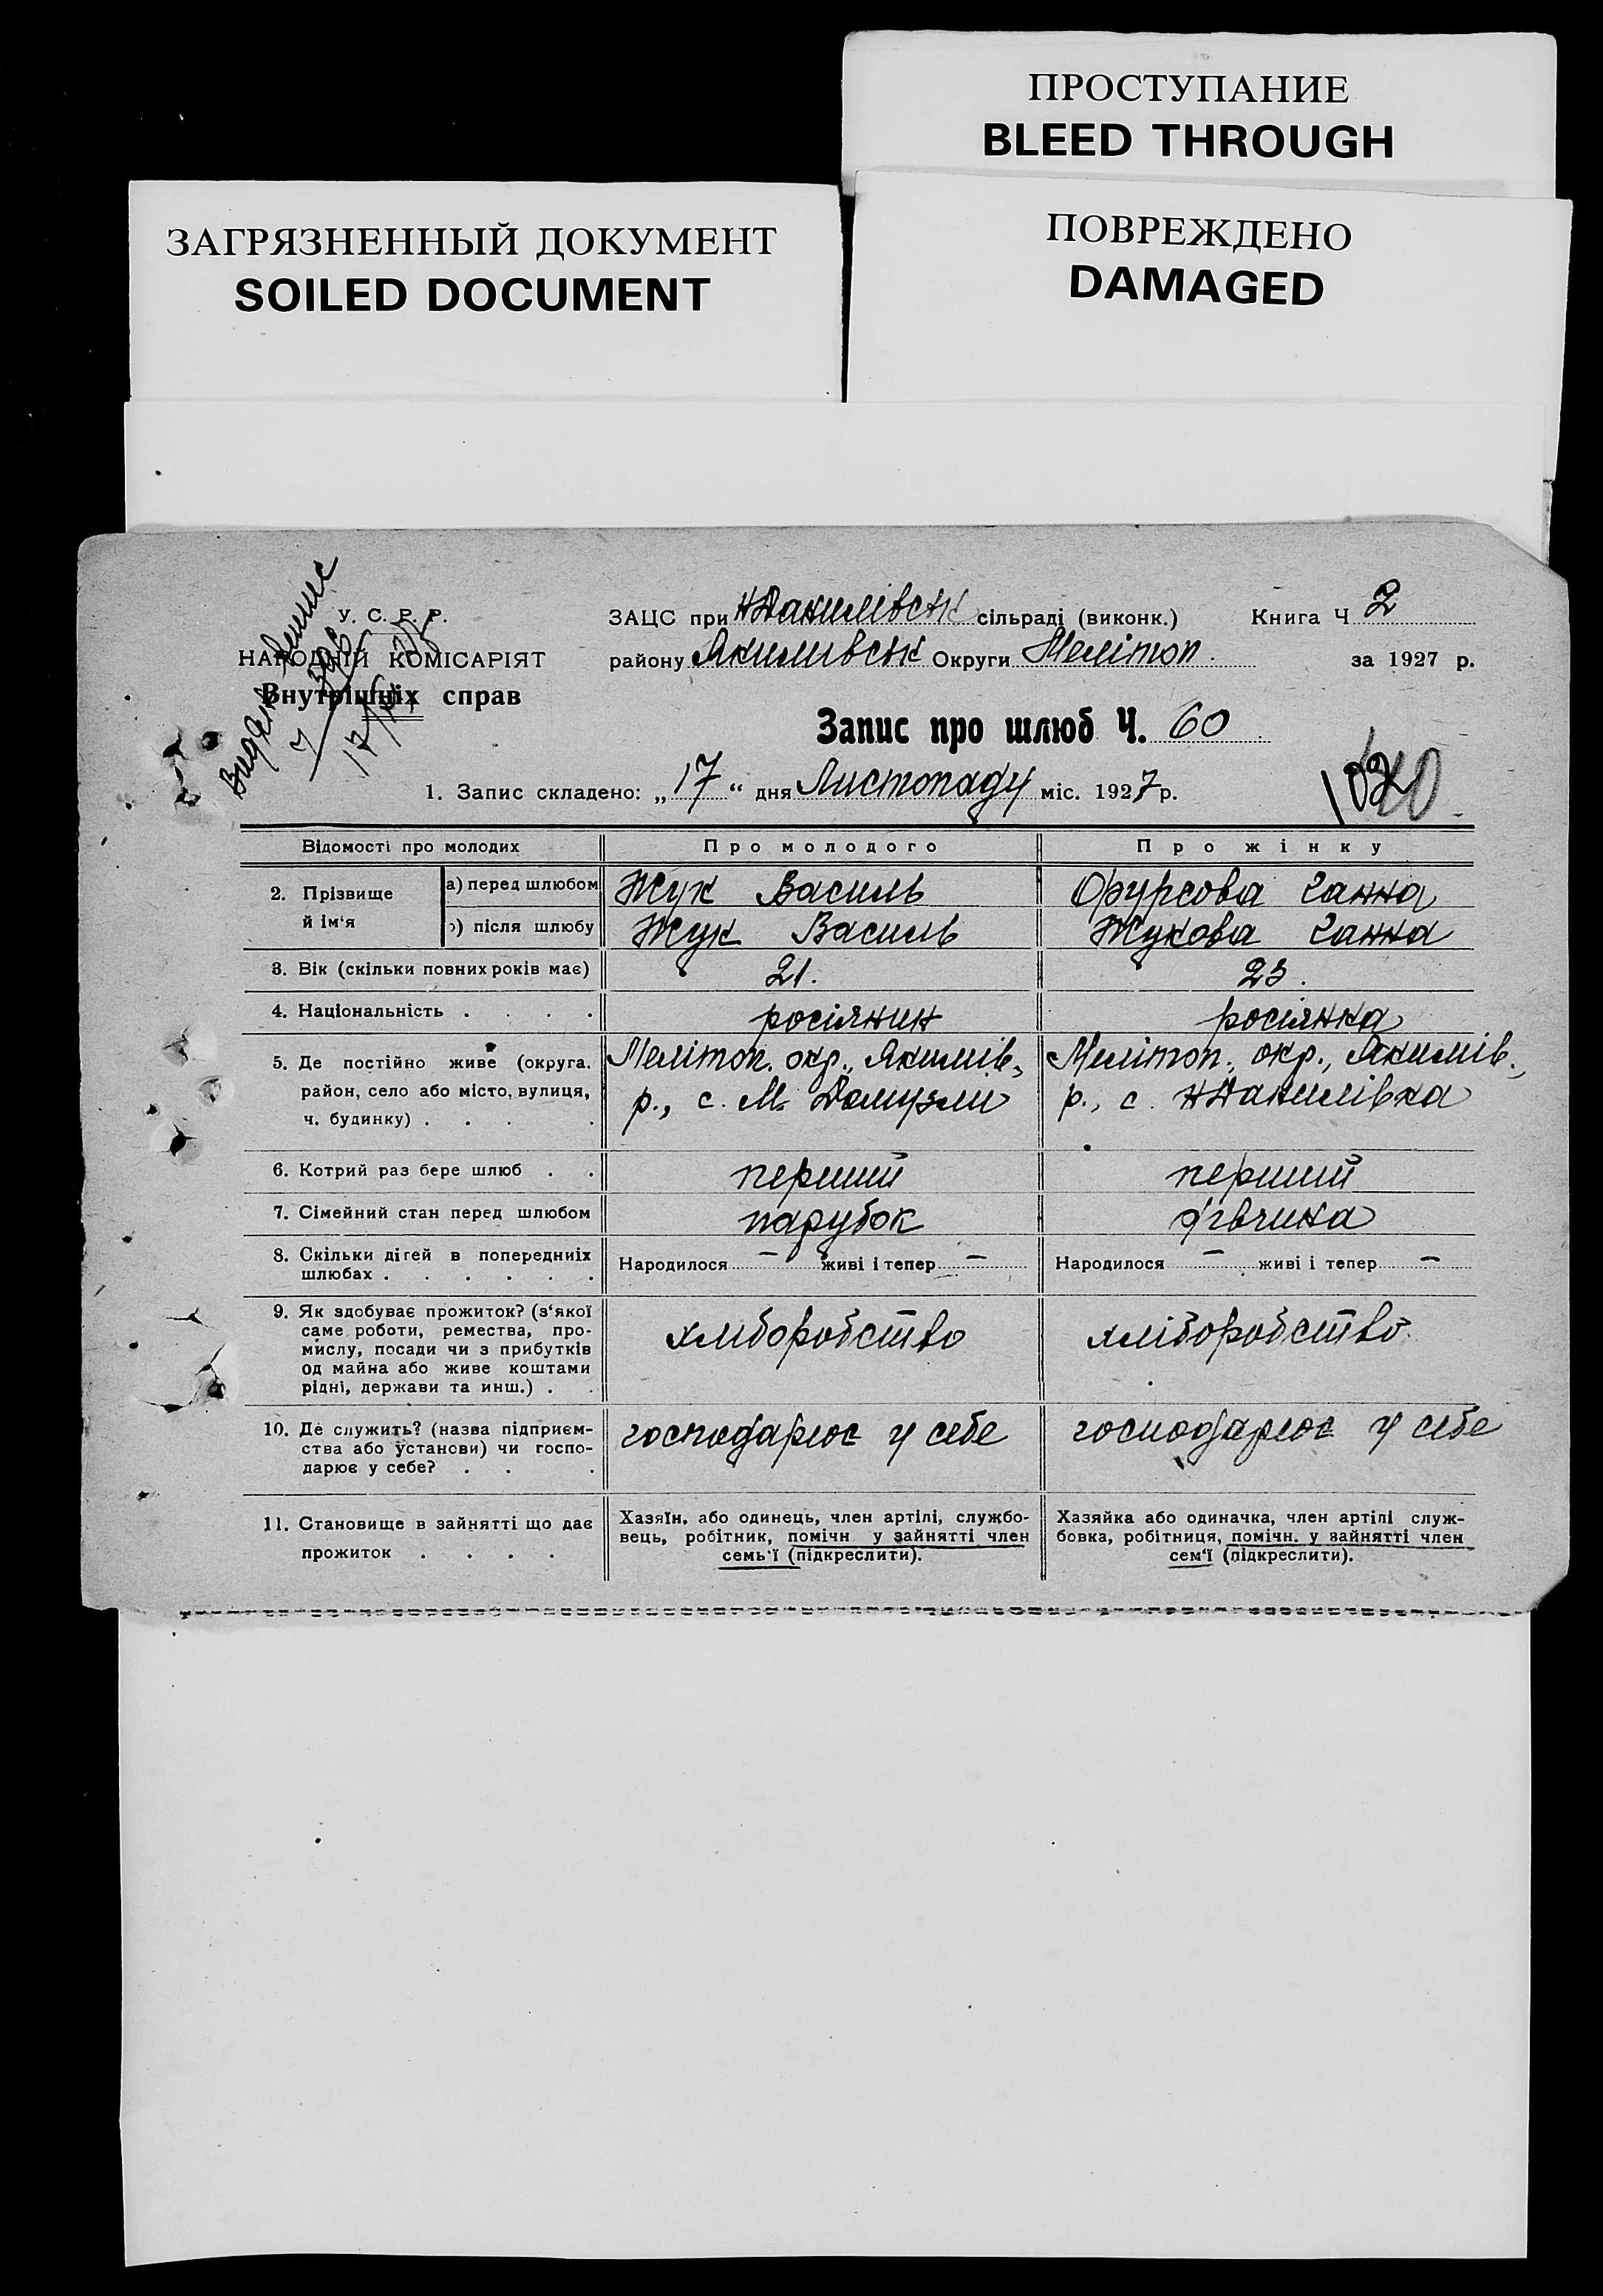 ПРОСТУПАНИЕ
BLEED THROUGH
ЗАГРЯЗНЕННЫЙ ДОКУМЕНТ
SOILED DOCUMENT
ПОВРЕЖДЕНО
DAMAGED
У. С. Р. Р.
НАРОДНІЙ КОМІСАРІЯТ
Внутрішніх справ
ЗАЦС при НДанилівськ сільраді (виконк.) Книга Ч 2
району Якимивськ Округи Мелітоп. за 1927 р.
Запис про шлюб Ч. 60
1. Запис складено: „17“ дня Листопаду міс. 1927 р.
Відомості про молодих Про молодого Про жінку
2. Прізвище й ім'я
а) перед шлюбом Жук Василь Фурсова Ганна
б) після шлюбу Жук Василь Жукова Ганна
3. Вік (скільки повних років має) 21. 23.
4. Національність . . . . росіянин росіянка
5. Де постійно живе (округа. Мелітоп. окр., Якимів. Мелітоп. окр., Якимів.
район, село або місто, вулиця, р., с. М. Домузли р., с. НДанилівка
ч. будинку) . . . .
6. Котрий раз бере шлюб . . перший перший
7. Сімейний стан перед шлюбом парубок дівчина
8. Скільки дітей в попередніх Народилося – живі і тепер – Народилося – живі і тепер –
шлюбах . . . . . .
9. Як здобуває прожиток? (з'якої
саме роботи, ремества, про- хліборобство хліборобство
мислу, посади чи з прибутків
од майна або живе коштами
рідні, держави та инш.) . .
10. Де служить? (назва підприєм- господарює у себе господарює у себе
ства або установи) чи госпо-
дарює у себе? . . .
11. Становище в зайнятті що дає Хазяїн, або одинець, член артілі, службо- Хазяйка або одиначка, член артілі служ-
прожиток . . . . вець, робітник, помічн у зайнятті член бовка, робітниця, помічн. у зайнятті член
семь'ї (підкреслити). сем'ї (підкреслити).